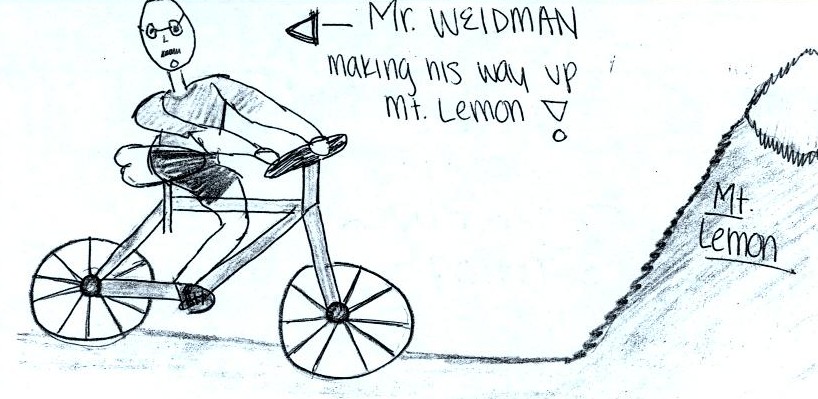 Mr. WEIDMAN
making his way up
mt. Lemon !
Mt.
Lemon